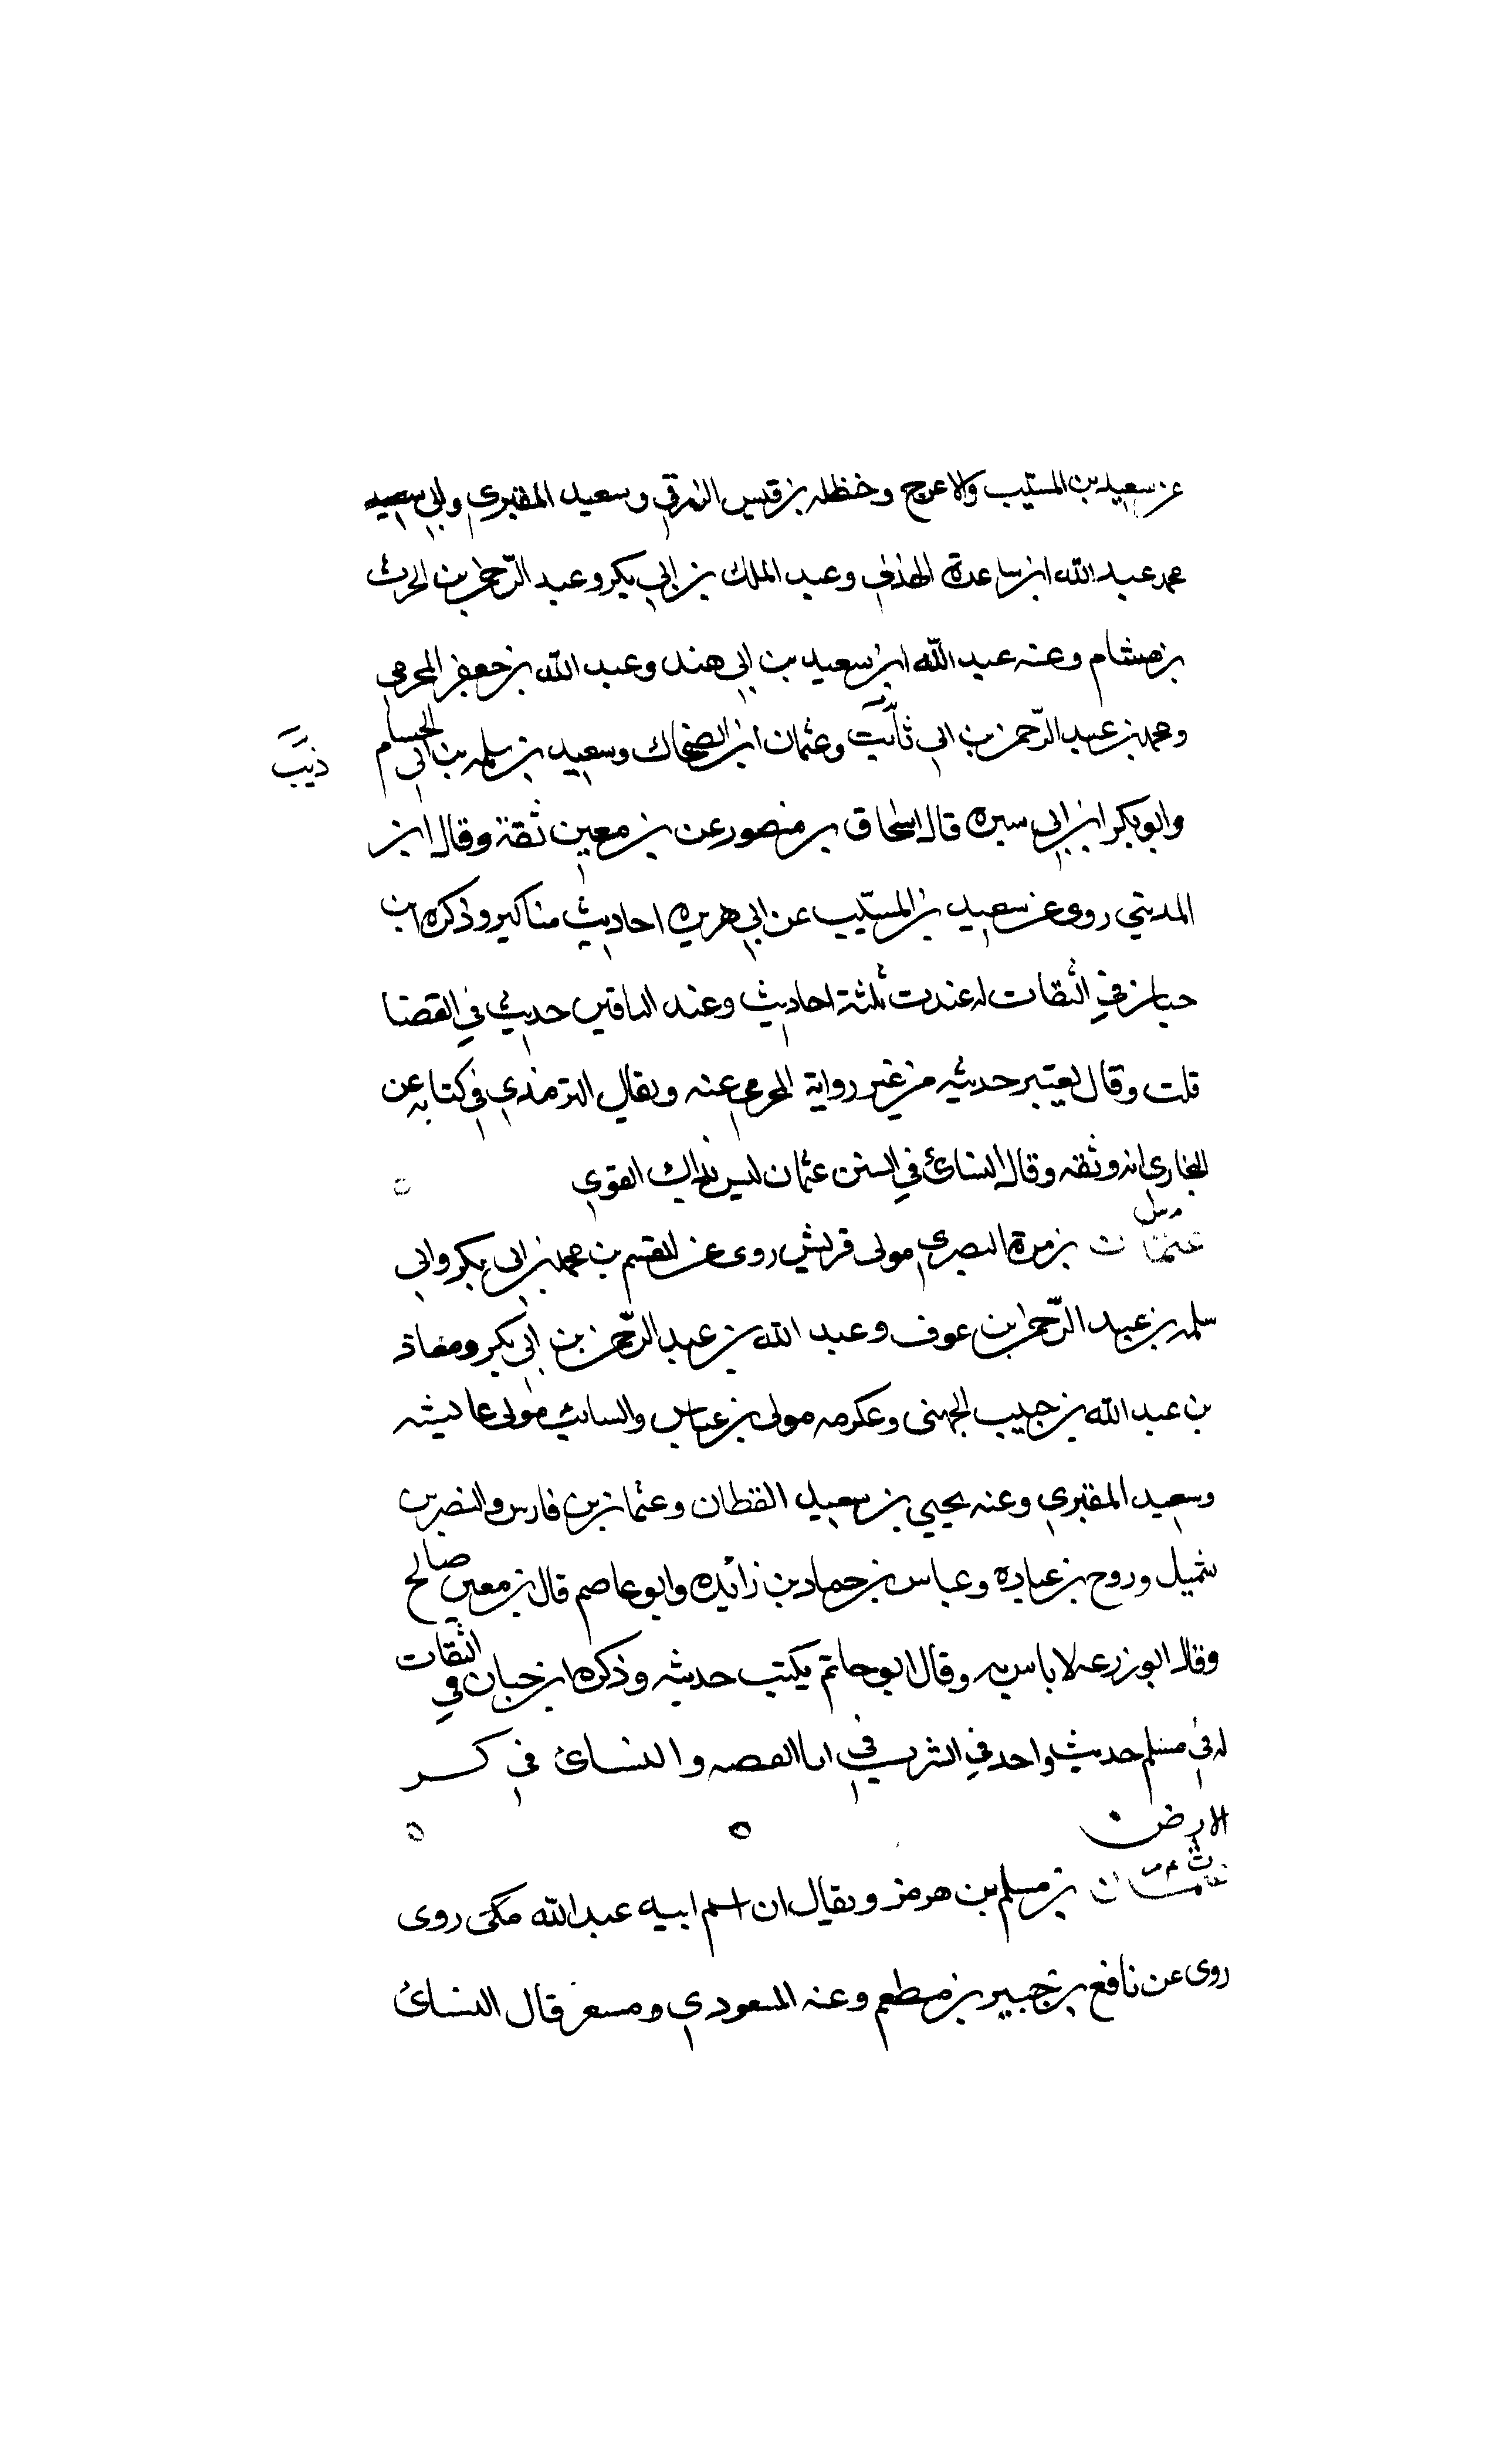 عن سعيد بن المسيب والاعرج وحنظله بن قيس الزرقي وسعيد المقبري وابي سعيد
محمد عبد الله ابن ساعدة الهذلي وعبد الملك بن ابي بكر وعبد الرحمن بن الحرث
بن هشام وعنه عبد الله ابن سعيد بن ابي هند وعبد الله بن جعفر المخرمي
ومحمد بن عبد الرحمن بن ابي ثابت وعثمان ابن الضحاك وسعيد بن سلمه بن ابي الحسام
ذيب
وابو بكر ابن ابي سبره قال اسحاق بن منصور عن بن معين ثقة وقال ابن
المديني روى عن سعيد بن المسيب عن ابي هريره احاديث مناكير وذكره ابن
حبان في الثقات له عند ت ثلثة احاديث وعند الباقين حديث في القضا
قلت وقال يعتبر حديثه من غير رواية المخرمي عنه ويقال الترمذي في كتابه عن
البخاري انه وثقه وقال النسائ في السنن عثمان ليس بذاك القوي
م س
عثمان بن مرة البصري مولى قريش روى عن القسم بن محمد بن ابي بكر وابي
سلمه بن عبد الرحمن بن عوف وعبد الله بن عبد الرحمن بن ابي بكر ومعاذ
بن عبد الله بن حبيب الجهني وعكرمه مولى بن عباس والسائب مولى عايشه
وسعيد المقبري وعنه يحيي بن سعيد القطان وعثمان بن فارس والنضر بن
شميل وروح بن عباده وعباس بن حماد بن زائده وابو عاصم قال بن معين صالح
وقال ابو زرعه لا باس به وقال ابو حاتم يكتب حديثه وذكره ابن حبان في الثقات
له في مسلم حديث واحد في الشرب في انا الفضه والنسائ في كر
الارض
ت عس
عثمان بن مسلم بن هرمز ويقال ان اسم ابيه عبد الله مكي روى
روى عن نافع بن جبير بن مطعم وعنه المسعودي ومسعر قال النسائ